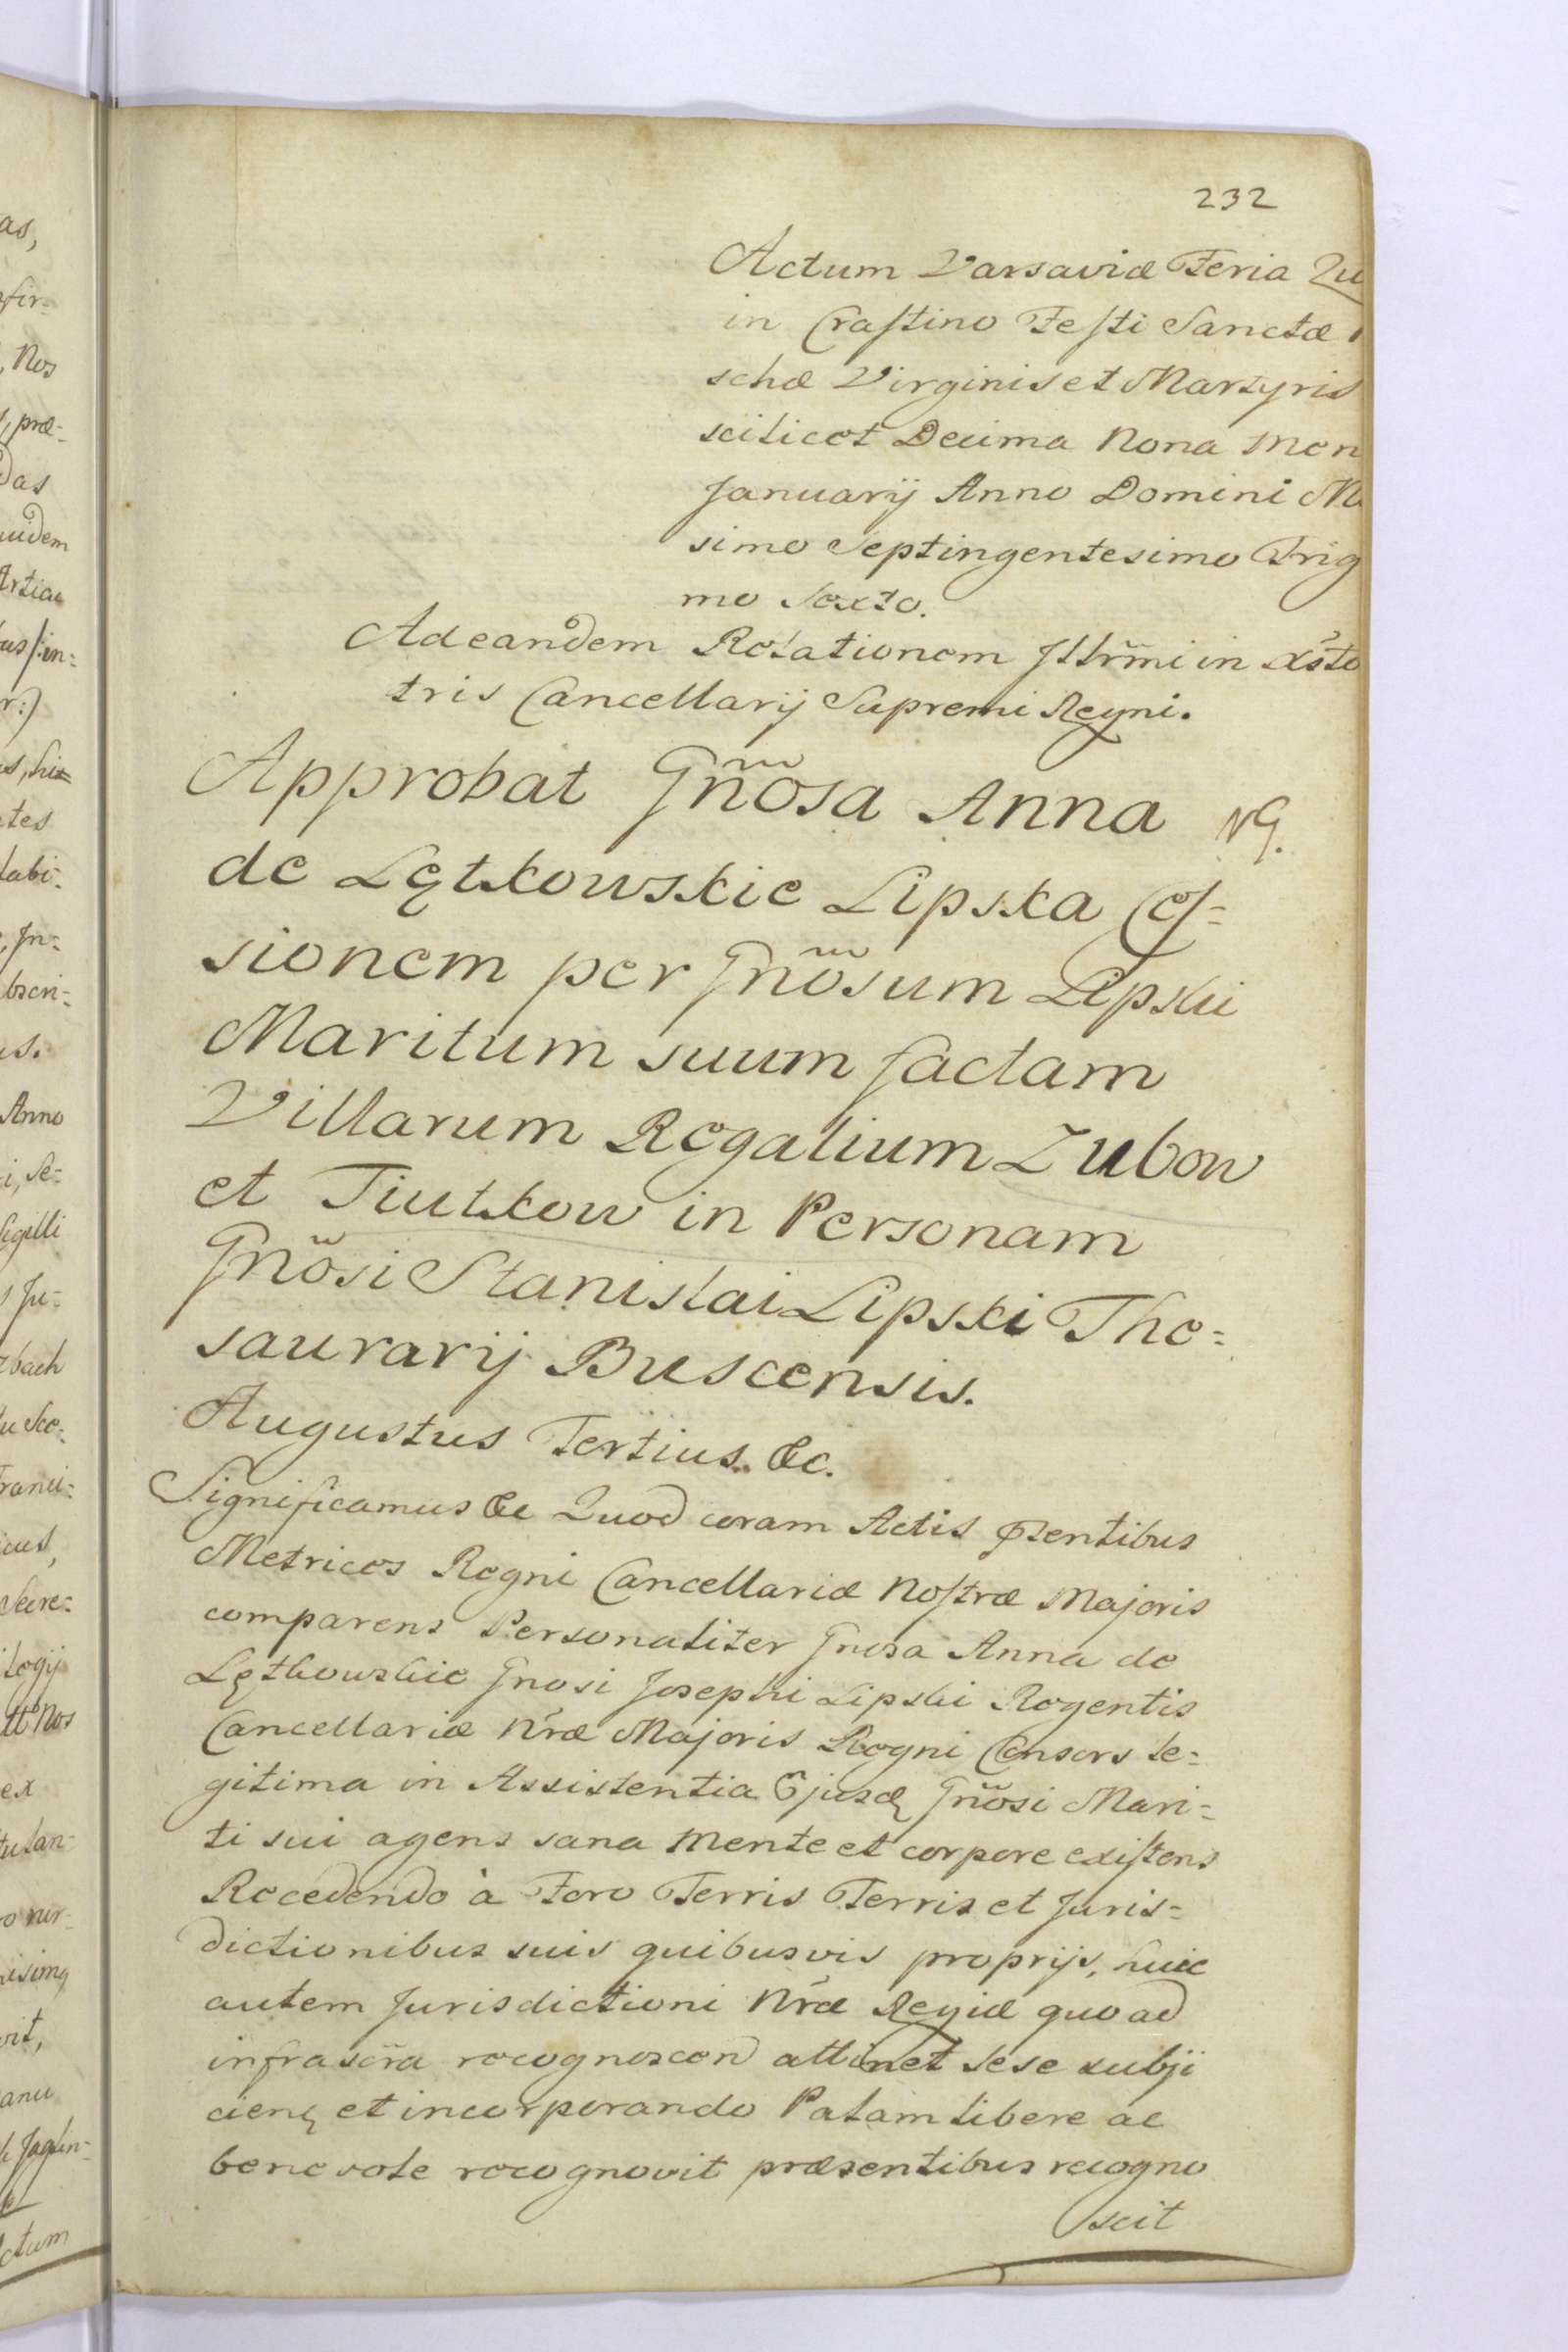 232
Actum Varsaviæ Feria Qu
in Craſtino Feſti Sanctæ
schæ Virginis et Martyris
scilicet Decima Nona Men
Januarij Anno Domini M
simo Septingentesimo Trig
mo Sexto.
Ad eandem Relationem Jllr̃mi in Xs̃to
tris Cancellarij Supremi Regni.
Approbat Gn̄õsa Anna NG.
de Lętkowskie Lipska Ceſ=
sionem per Gn̄õsum Lipski
Maritum suum factam
Villarum Regalium Zubow
et Tiutkow in Personam
Gn̄õsi Stanislai Lipski The=
saurarij Buscensis.
Augustus Tertius. &c.
Significamus &c Quod coram Actis p̄sentibus
Metrices Regni Cancellariæ Noſtræ Majoris
comparens Personaliter Gnosa Anna de
Lętkowskie Gnosi Josephi Lipski Regentis
Cancellariæ Nr̃æ Majoris Regni Consors le=
gitima in Assistentia Ejusdę Gn̄õsi Mari=
ti sui agens sana Mente et corpore exiſtens
Recedendo à Foro Terris Terris et Juris=
dictionibus suis quibusvis proprijs, huic
autem Jurisdictioni Nr̃æ Regiæ quoad
infrascr̃a recognoscen attinet sese subji
cienę et incorporando Palam libere ac
benevole recognovit præsentibus recogno
scit
as,
Nos
præ=
das
uidem
in=
r:)
tes
labi=
Jn=
us.
Anno
Se=
Sigilli
Ju=
bach
Nos
ex
tulan=
vit,
anu
ctum